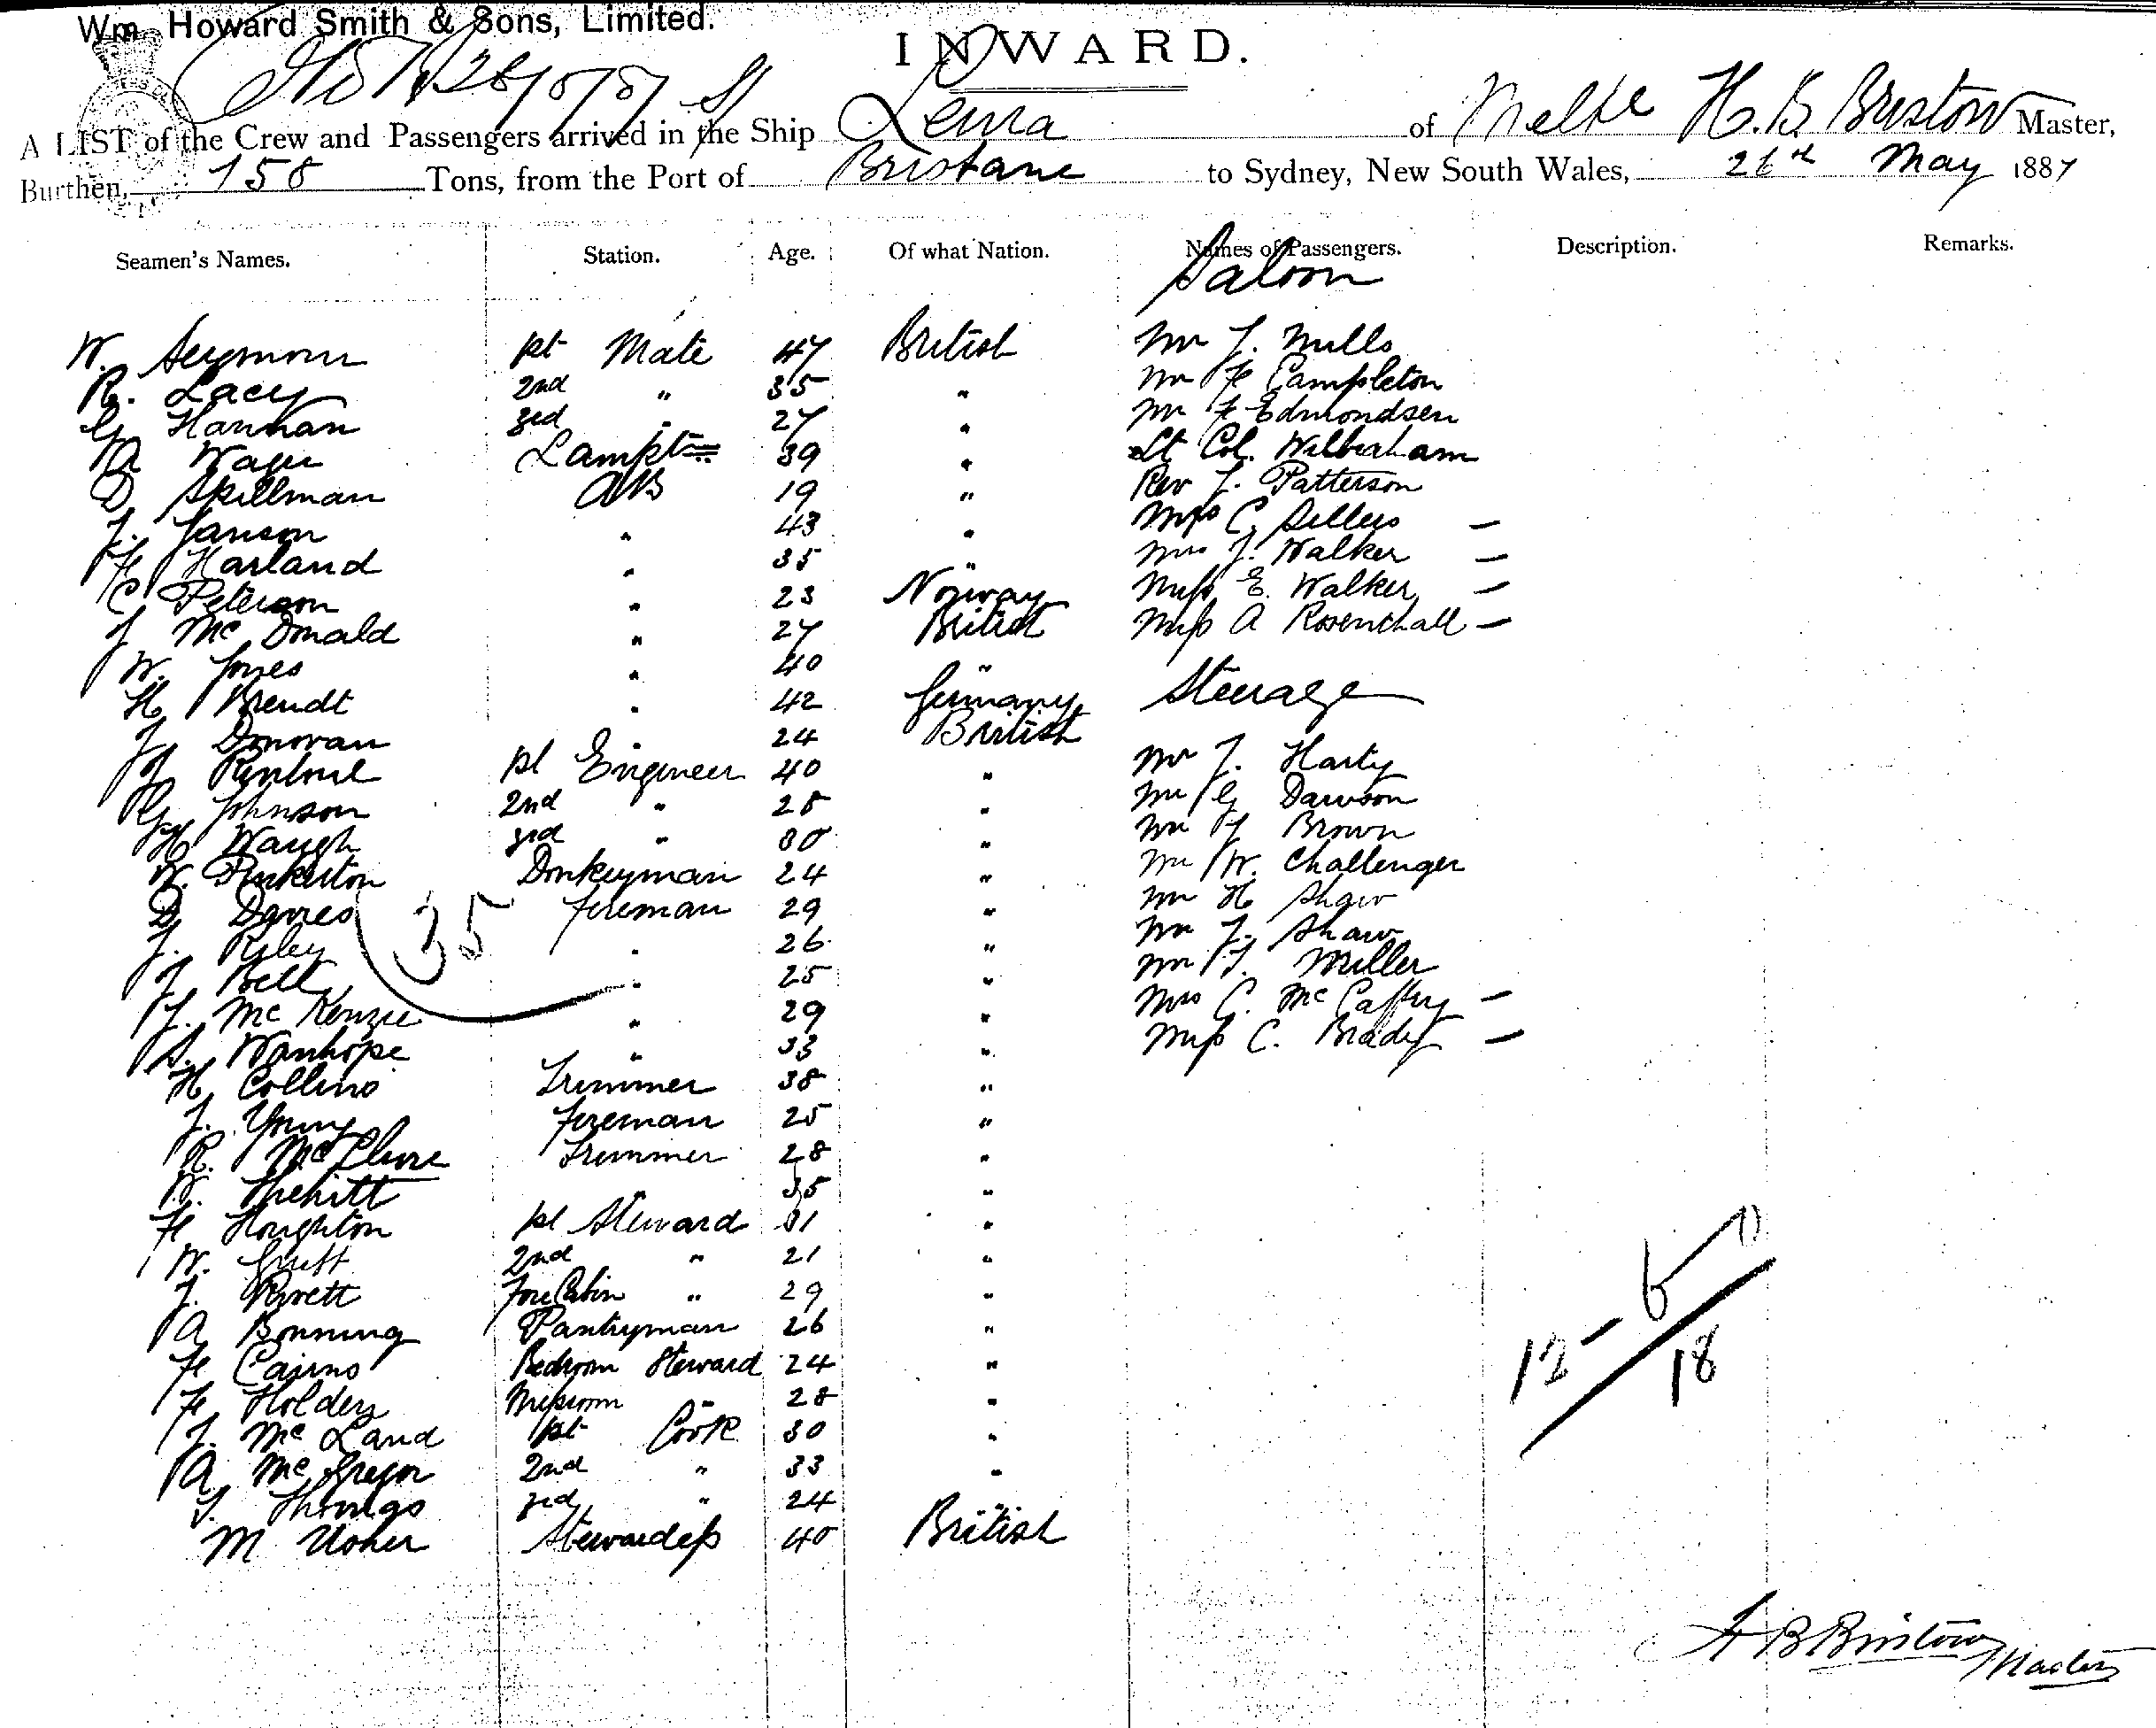 Wm. Howard Smith & Sons, Limited.
INWARD.
A LIST of the Crew and Passengers arrived in the Ship Leura of Melbe H. B. Bristow Master,
Burthen, 158 Tons, from the Port of Brisbane to Sydney, New South Wales, 26th May 1887
Seamen's Names. Station. Age. Of what Nation. Names of Passengers. Description. Remarks.
Saloon
W. Seymour 1st Mate 47 British Mr J. Mills
R. Lacey 2nd " 35 " Mr F Campleton
G Hannan 3rd " 27 " Mr F Edmondsen
A Wager Lampt 39 " Lt Col. Wilbraham
D Skillman AB 19 " Rev J. Patterson
J. Janson " 43 " Mrs C. Sellers —
F Harland " 35 " Mrs J. Walker —
C Peterson " 23 Norway Miss E. Walker —
J McDonald " 27 British Miss A Rosenthall —
W. Jones " 40 "
H Brendt " 42 Germany Steerage
J Donovan " 24 British
J Rintoul 1st Engineer 40 " Mr J. Harty
G Johnson 2nd " 28 " Mr G Dawson
H Waugh 3rd " 30 " Mr J Brown
W. Pinkerton Donkeyman 24 " Mr W. Challenger
D Davies Fireman 29 " Mr H Shaw
J. Riley " 26 " Mr J. Shaw
J Bell " 25 " Mr J. Miller
J. McKenzie " 29 " Mrs C. McCaffery —
Wanhope " 33 " Miss C. Brady —
H Collins Trimmer 38 "
J. Young Fireman 25 "
R. McClure Trimmer 28 "
W. " 35 "
F Houghton 1st Steward 31 "
W. 2nd " 21 "
J. Fore Cabin " 29 "
A Bonning Pantryman 26 "
F Cairns Bedroom Steward 24 "
F Holders Messroom " 28 "
J. McLand 1st Cook 30 "
A McGregor 2nd " 33 "
J. Thomas 3rd " 24 "
M Usher Stewardess 40 British
35
12 — 6
18
H B Bristow Master